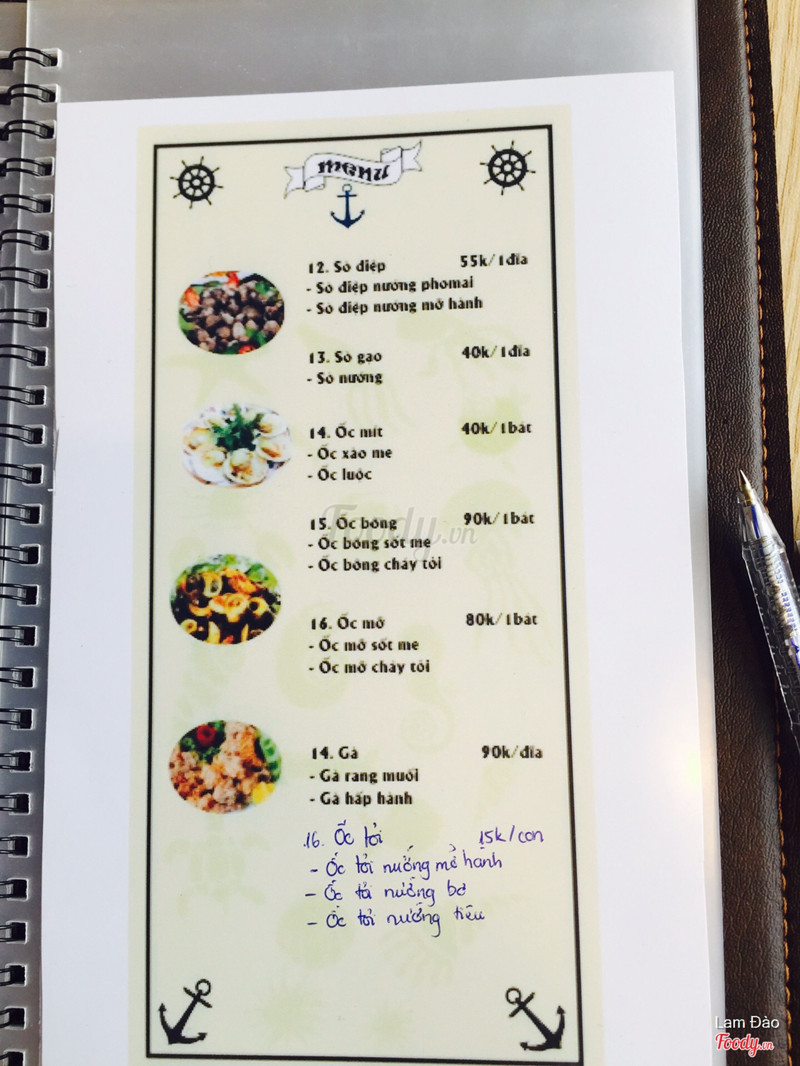 menu
12. Sò điệp 55k/1đĩa
- Sò điệp nướng phomai
- Sò điệp nướng mỡ hành
13. Sò gạo 40k/1đĩa
- Sò nướng
14. Ốc mít 40k/1bát
- Ốc xào me
- Ốc luộc
15. Ốc bóng 90k/1bát
- Ốc bóng sốt me
- Ốc bóng cháy tỏi
16. Ốc mỡ 80k/1bát
- Ốc mỡ sốt me
- Ốc mỡ cháy tỏi
14. Gà 90k/đĩa
- Gà rang muối
- Gà hấp hành
16. Ốc tỏi 15k/con
- Ốc tỏi nướng mỡ hành
- Ốc tỏi nướng bơ
- Ốc tỏi nướng tiêu
Foody.vn
Lam Đào
Foody.vn